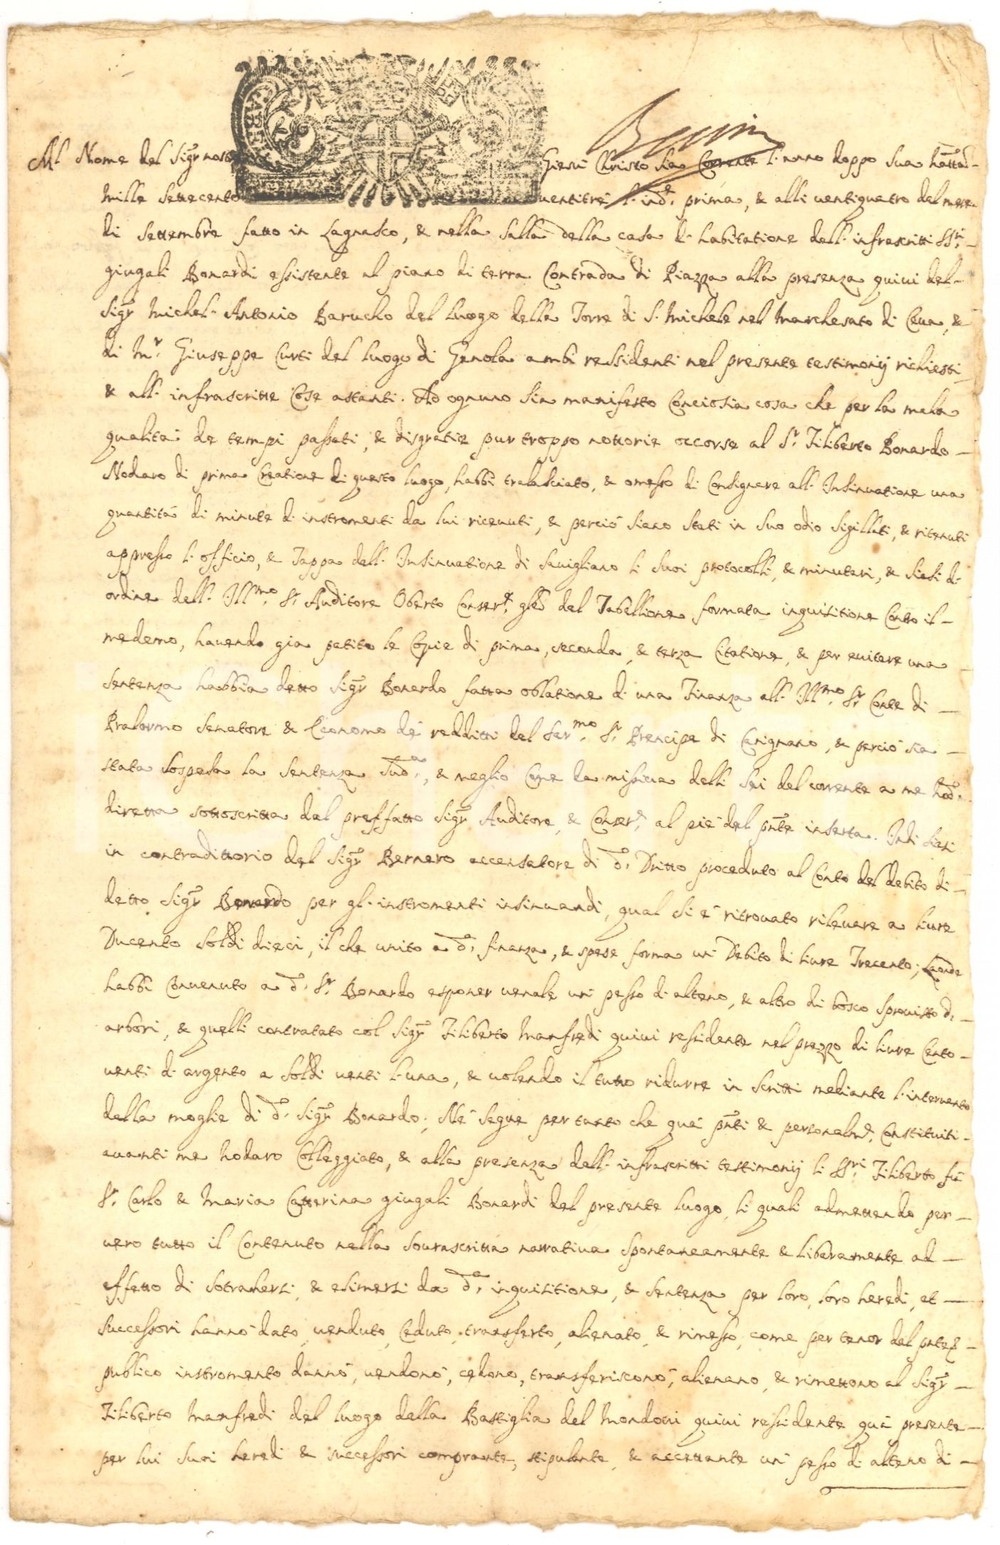 Al Nome del Sigr nostro Giesù Christo sia Corrente l'anno doppo sua Nattà
mille settecento ventitrè l'indne prima, & alli ventiquatro del mese
di Settembre fatto in Lagnasco, & nella salla della casa d'habitatione dell'infrascritti SSri
giugali Bonardi essistente al piano di terra Contrada di Piazza alla presenza quivi del
Sigr Michel' Antonio Barucho del luogo della Torre di S. Michele nel Marchesato di Ceva, &
di Mr Giuseppe Curti del luogo di Genola ambi ressidenti nel presente testimonij richiesti
& all'infrascritte Cose astanti. Ad ognuno sia manifesto Conciosia cosa che per la mala
qualità de tempi passati, & disgratie pur troppo nottorie occorse al Sr Filiberto Bonardo
Nodaro di prima Creatione di questo luogo, habbi tralasciato, & omesso di Consignare all'Insinuatione una
quantità di minute di instromenti da lui ricevuti, & perciò siano stati in suo odio sigillati, & ritenuti
appresso l'officio, & Tappa dell'Insinuatione di Savigliano li suoi protocolli, & minutari, & siasi d'
ordine dell'Illmo Sr Auditore Oberto Conserve gle del Tabellione formata inquisitione Conto il
medemo, havendo già patito le Copie di prima, seconda, & terza Citatione, & per evitare una
sentenza habbia detto Sigr Bonardo fatta oblatione di una Finanza all'Illmo Sr Conte di
Pralormo Senatore & Economo de redditti del Sermo Sr Prencipe di Carignano, & perciò sia
stata sospesa la sentenza sudta, & meglio Come da missiva delli sei del corrente a me Nodo
diretta sottoscritta dal preffatto Sigr Auditore, & Conserve al piè del pnte inserta. Indi siasi
in contradittorio del Sigr Bernero accensatore di do Dritto proceduto al Conto del debito di
detto Sigr Bonardo per gl'instromenti insinuandi, qual si è ritrovato rilevare a livre
Ducento soldi dieci, il che unito a da finanza, & spese forma un Debito di livre Trecento; Laonde
habbi Convenuto a do Sr Bonardo esponer venale un pesso di alteno, & altro di bosco sprovisto d'
arbori, & quelli contratato col Sigr Filiberto Manfredi quivi ressidente nel prezzo di livre Cento
venti di argento a soldi venti l'una, & volendo il tutto ridurre in scritti mediante l'intervento
della moglie di do Sigr Bonardo; Ne segue pertanto che quà pnti & personalmte Constituiti
avanti me Nodaro Colleggiato, & alla presenza dell'infrascritti testimonij li SSri Filiberto fù
Sr Carlo & Maria Catterina giugali Bonardi del presente luogo, li quali admettendo per
vero tutto il Contenuto nella sovrascritta narrativa spontaneamente & liberamente ad
effetto di sotrahersi, & esimersi da da inquisitione, & sentenza per loro, loro heredi, et
successori hanno dato, venduto, Ceduto, transferto, alienato, & rimesso, come per tenor del pnte
publico instromento danno, vendono, cedono, transferiscono, alienano, & rimettono al Sigr
Filiberto Manfredi del luogo della Bastiglia del Mondovi quivi ressidente quà presente
per lui suoi heredi & successori comprante, stipulante, & accettante un pesso di alteno di